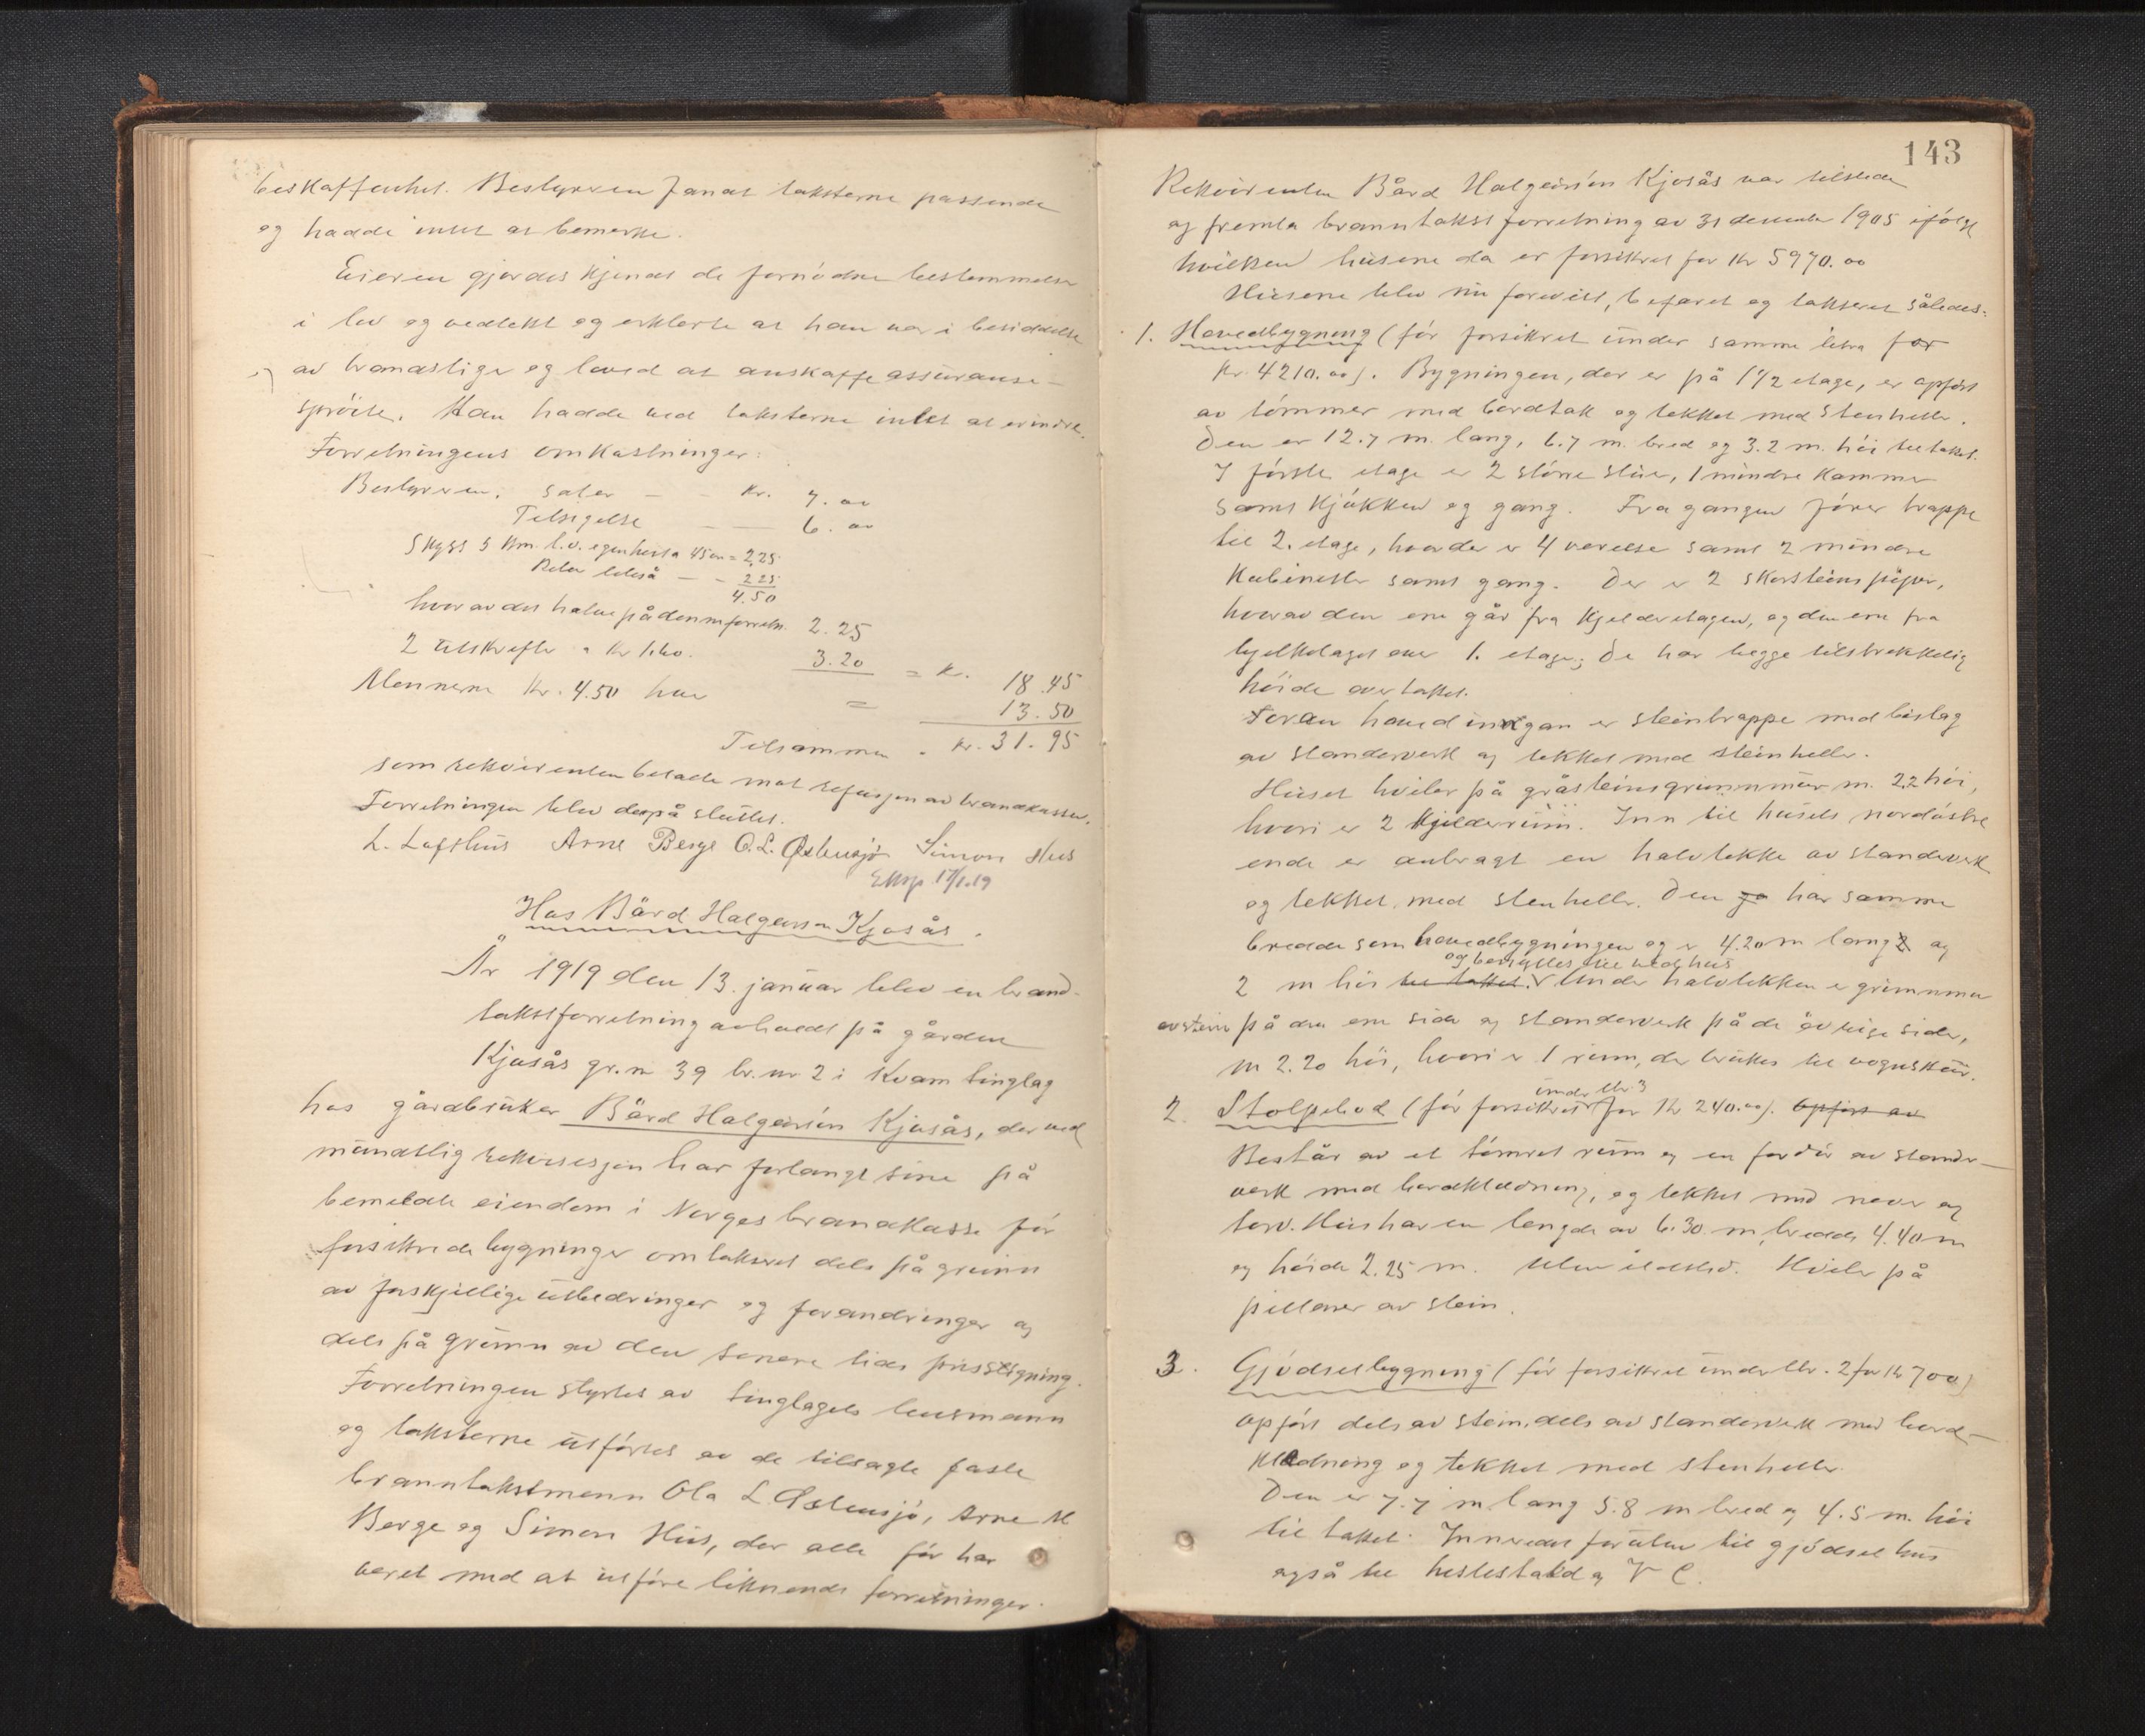 beskaffenhet. Bestyreren fandt taksterne passende
og hadde intet at bemerke.
Eieren gjordes kjendt de fornödne bestemmelser
i lov og vedtekt og erklerte at han var i besiddelse
av brandstige og loved at anskaffe assuranse-
spröite. Han hadde ved taksterne intet at erindre.
Forretningens omkostninger:
Bestyreren, salær — - kr. 7.00
Tilsigelse — — 6.00
Skyss 5 km. t.v. egen hest a 45 øre = 2,25
Retur likeså — - 2.25
4.50
hvorav det halve på denne forretn. 2.25
2 utskrifter a kr 1.60. 3.20 = kr. 18.45
Mennerne kr. 4.50 hver = 13.50
Tilsammen - kr. 31.95
som rekvirenten betalte mot refusjon av brandkassen.
Forretningen blev derpå sluttet.
L. Lofthus Arne Berge O.L. Østensjö Simon Hus
Eksp 17/1.19
Hos Bård Halgeirson Kjosås.
År 1919 den 13. januar blev en brand-
takstforretning avholdt på gården
Kjosås gr.nr 39 br.nr 2 i Kvam tinglag
hos gårdbruker Bård Halgeirsön Kjosås, der ved
mundtlig rekvisisjon har forlangt sine på
bemeldte eiendom i Norges brandkasse för
forsikrede bygninger omtaksert dels på grunn
av forskjellige utbedringer og forandringer og
dels på grunn av den senere tids prisstigning.
Forretningen styrtes av tinglagets lensmann
og taksterne utförtes av de tilsagte faste
branntakstmenn Ola L Østensjö, Arne M
Berge og Simon Hus, der alle för har
veret med at utföre liknende forretninger.
143
Rekvirenten Bård Halgeirsön Kjosås var tilstede
og fremla branntakstforretning av 31 desember 1905 ifölge
hvilken husene da er forsikret for kr 5970.00
Husene blev nu forevist, befaret og taksert således:
1. Hovedbygning (för forsikret under samme litra for
kr. 4210.00). Bygningen, der er på 1 1/2 etage, er opfört
av tömmer med bordtak og tekket med stenheller.
Den er 12.7 m. lang, 6.7 m. bred og 3.2 m. höi til taket.
I förste etage er 2 större stuer, 1 mindre kammer
samt kjökken og gang. Fra gangen förer trappe
til 2. etage, hvor der er 4 værelse samt 2 mindre
kabinetter samt gang. Der er 2 skorsteinspiper,
hvorav den ene går fra kjelderetagen, og den ene fra
bjelkelaget over 1. etage; de har begge tilstrekkelig
höide over taket.
Foran hovedinngan er steintrappe med bislag
av standerverk og tekket med steinheller.
Huset hviler på gråsteinsgrunnmur m. 2,2 höi,
hvori er 2 kjelderrum. Inn til husets nordöstre
ende er anbragt en halvtekke av standerverk
og tekket med stenheller. Den ja har samme
bredde som hovedbygningen og er 4.20 m lang 2 og
og benyttes til vedhus
2 m höi til taket. V Under halvtekken er grunnmur
av stein på den ene side og standerverk på de övrige sider,
m 2.20 höi, hvori er 1 rum, der brukes til vognskur.
under litr. 3
2. Stolpebod (för forsikret for kr 240.00). Opfört av
Består av et tömret rum og en fordör av stander-
verk med bordkledning, og tekket med never og
torv. Hus har en lengde av 6.30 m, bredde 4.40 m
og höide 2.25 m. Uten ildsted. Hviler på
pillarer av stein.
3. Gjödselbygning (för forsikret under litr. 2 for kr 700)
opfört dels av stein, dels av standerverk med bord-
kledning og tekket med stenheller.
Den er 7.7 m lang 5.8 m bred og 4.5 m. höi
til taket. Innredet foruten til gjödselhus
også til hestestald og V C.